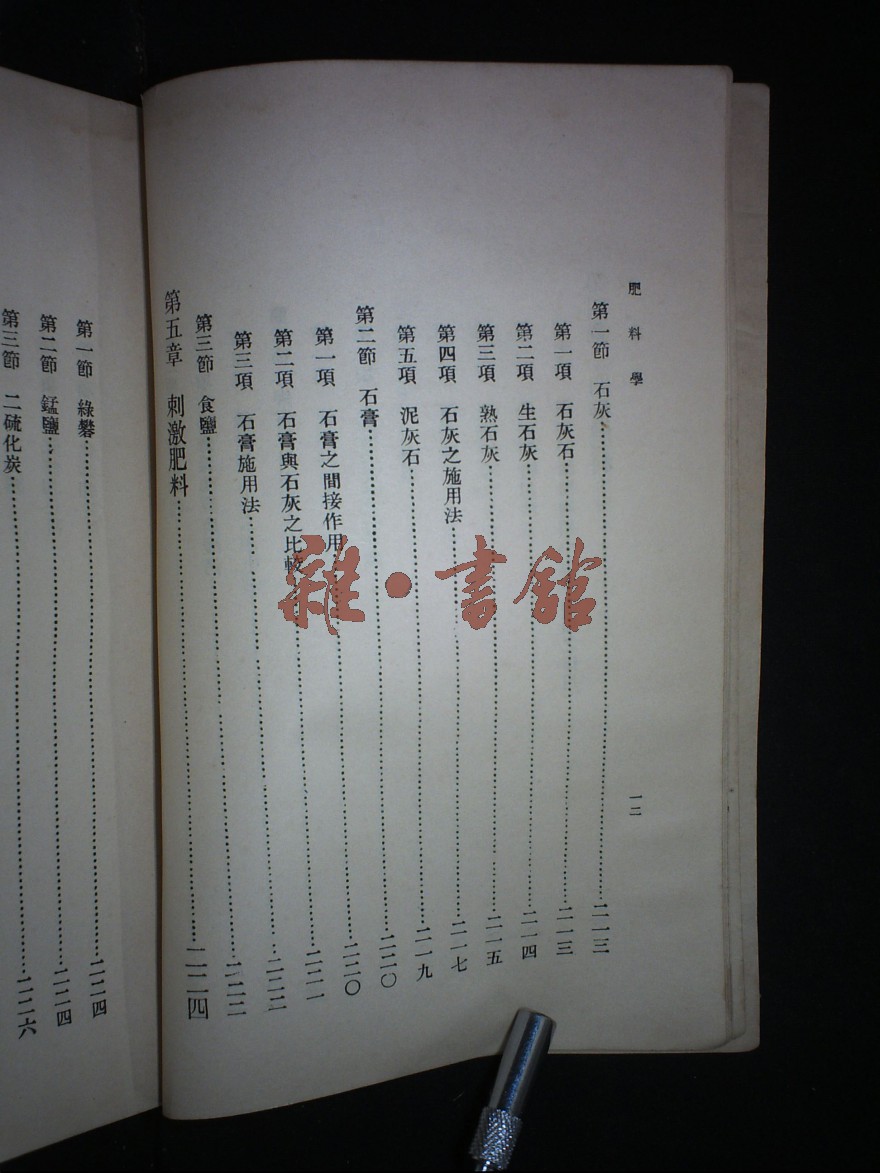 肥料學
一二
第一節 石灰……二一三
第一項 石灰石……二一三
第二項 生石灰……二一四
第三項 熟石灰……二一五
第四項 石灰之施用法……二一七
第五項 泥灰石……二一九
第二節 石膏……二二〇
第一項 石膏之間接作用……二二一
第二項 石膏與石灰之比較……二二二
第三項 石膏施用法……二二二
第三節 食鹽……二二三
第五章 刺激肥料……二二四
第一節 綠礬……二二四
第二節 錳鹽……二二四
第三節 二硫化炭……二二六
雜·書館